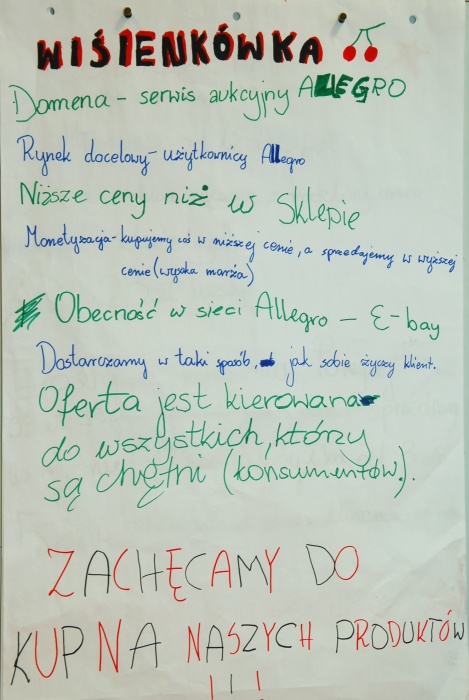 WIŚIENKÓWKA
Domena - serwis aukcyjny ALLEGRO
Rynek docelowy - użytkownicy Allegro
Niższe ceny niż w Sklepie
Monetyzacja - kupujemy coś w niższej cenie, a sprzedajemy w wyższej
cenie (wysoka marża)
Obecność w sieci Allegro - E-bay
Dostarczamy w taki sposób, jak sobie życzy klient.
Oferta jest kierowana
do wszystkich, którzy
są chętni (konsumentów).
ZACHĘCAMY DO
KUPNA NASZYCH PRODUKTÓW
!!!